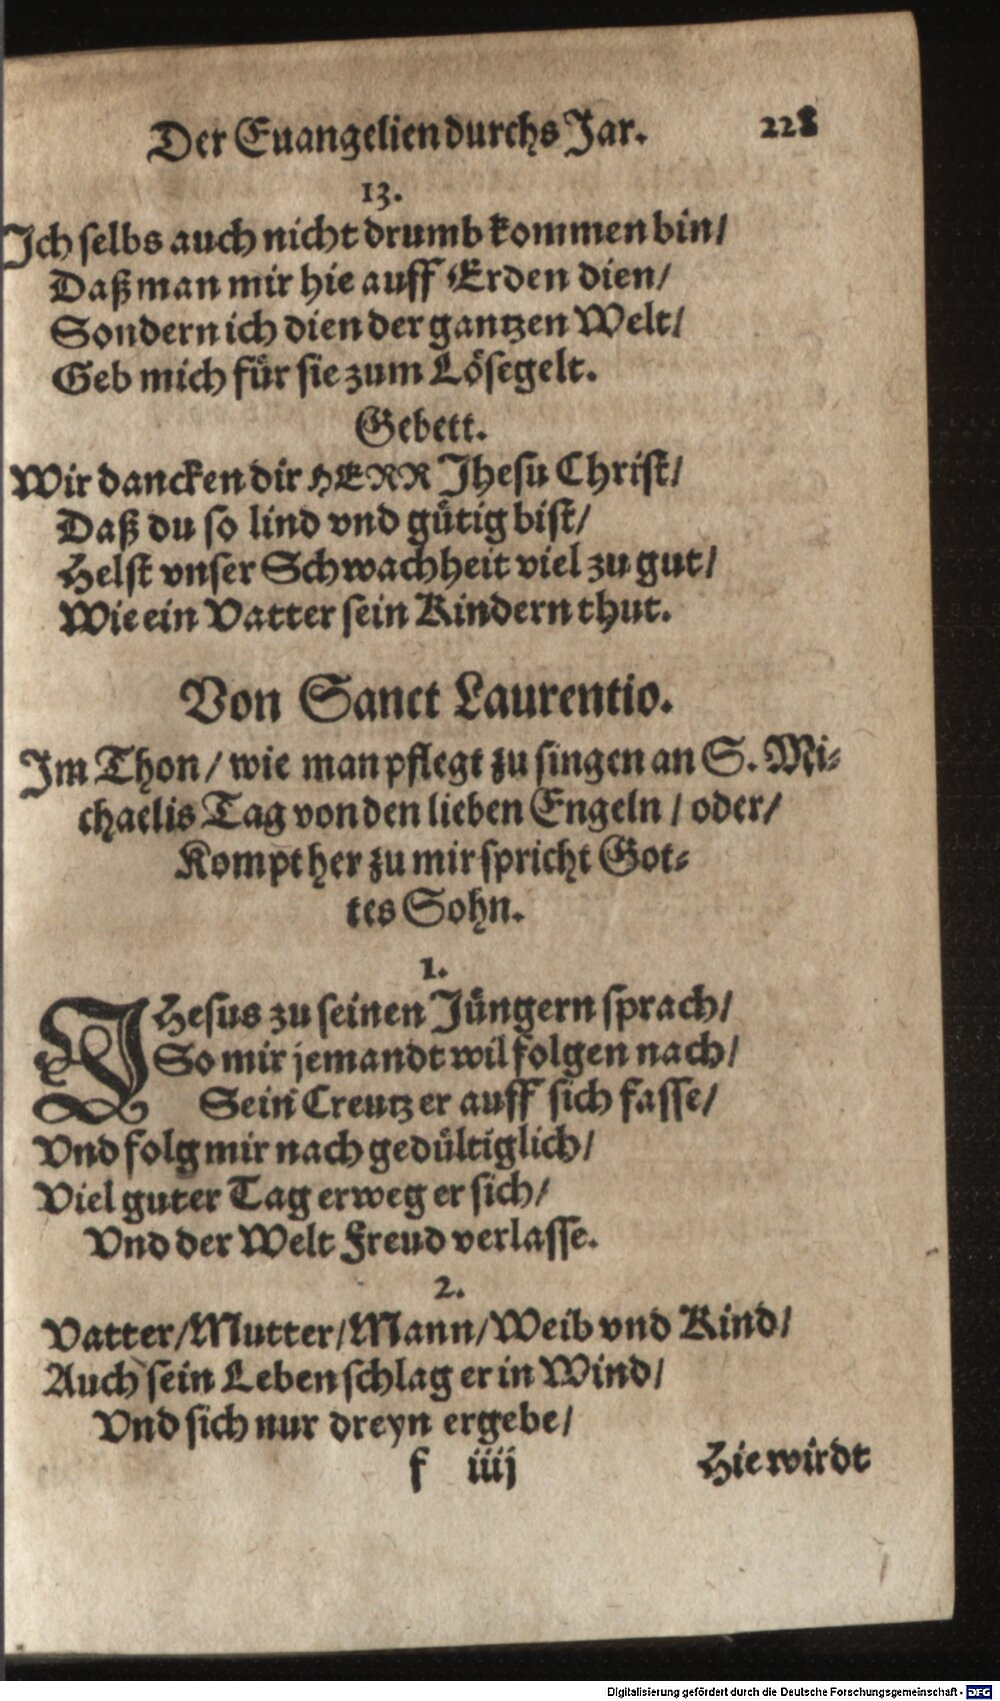 Der Euangelien durchs Jar. 228
13.
Ich selbs auch nicht drumb kommen bin/
Daß man mir hie auff Erden dien/
Sondern ich dien der gantzen Welt/
Geb mich für sie zum Lösegelt.
Gebett.
Wir dancken dir HERR Jhesu Christ/
Daß du so lind vnd gütig bist/
Helst vnser Schwachheit viel zu gut/
Wie ein Vatter sein Kindern thut.
Von Sanct Laurentio.
Im Thon/ wie man pflegt zu singen an S. Mi-
chaelis Tag von den lieben Engeln / oder/
Kompt her zu mir spricht Got-
tes Sohn.
1.
JHesus zu seinen Jüngern sprach/
So mir jemandt wil folgen nach/
Sein Creutz er auff sich fasse/
Vnd folg mir nach gedültiglich/
Viel guter Tag erweg er sich/
Vnd der Welt Freud verlasse.
2.
Vatter/Mutter/Mann/Weib vnd Kind/
Auch sein Leben schlag er in Wind/
Vnd sich nur dreyn ergebe/
f iiij Hie wirdt
Digitalisierung gefördert durch die Deutsche Forschungsgemeinschaft - DFG